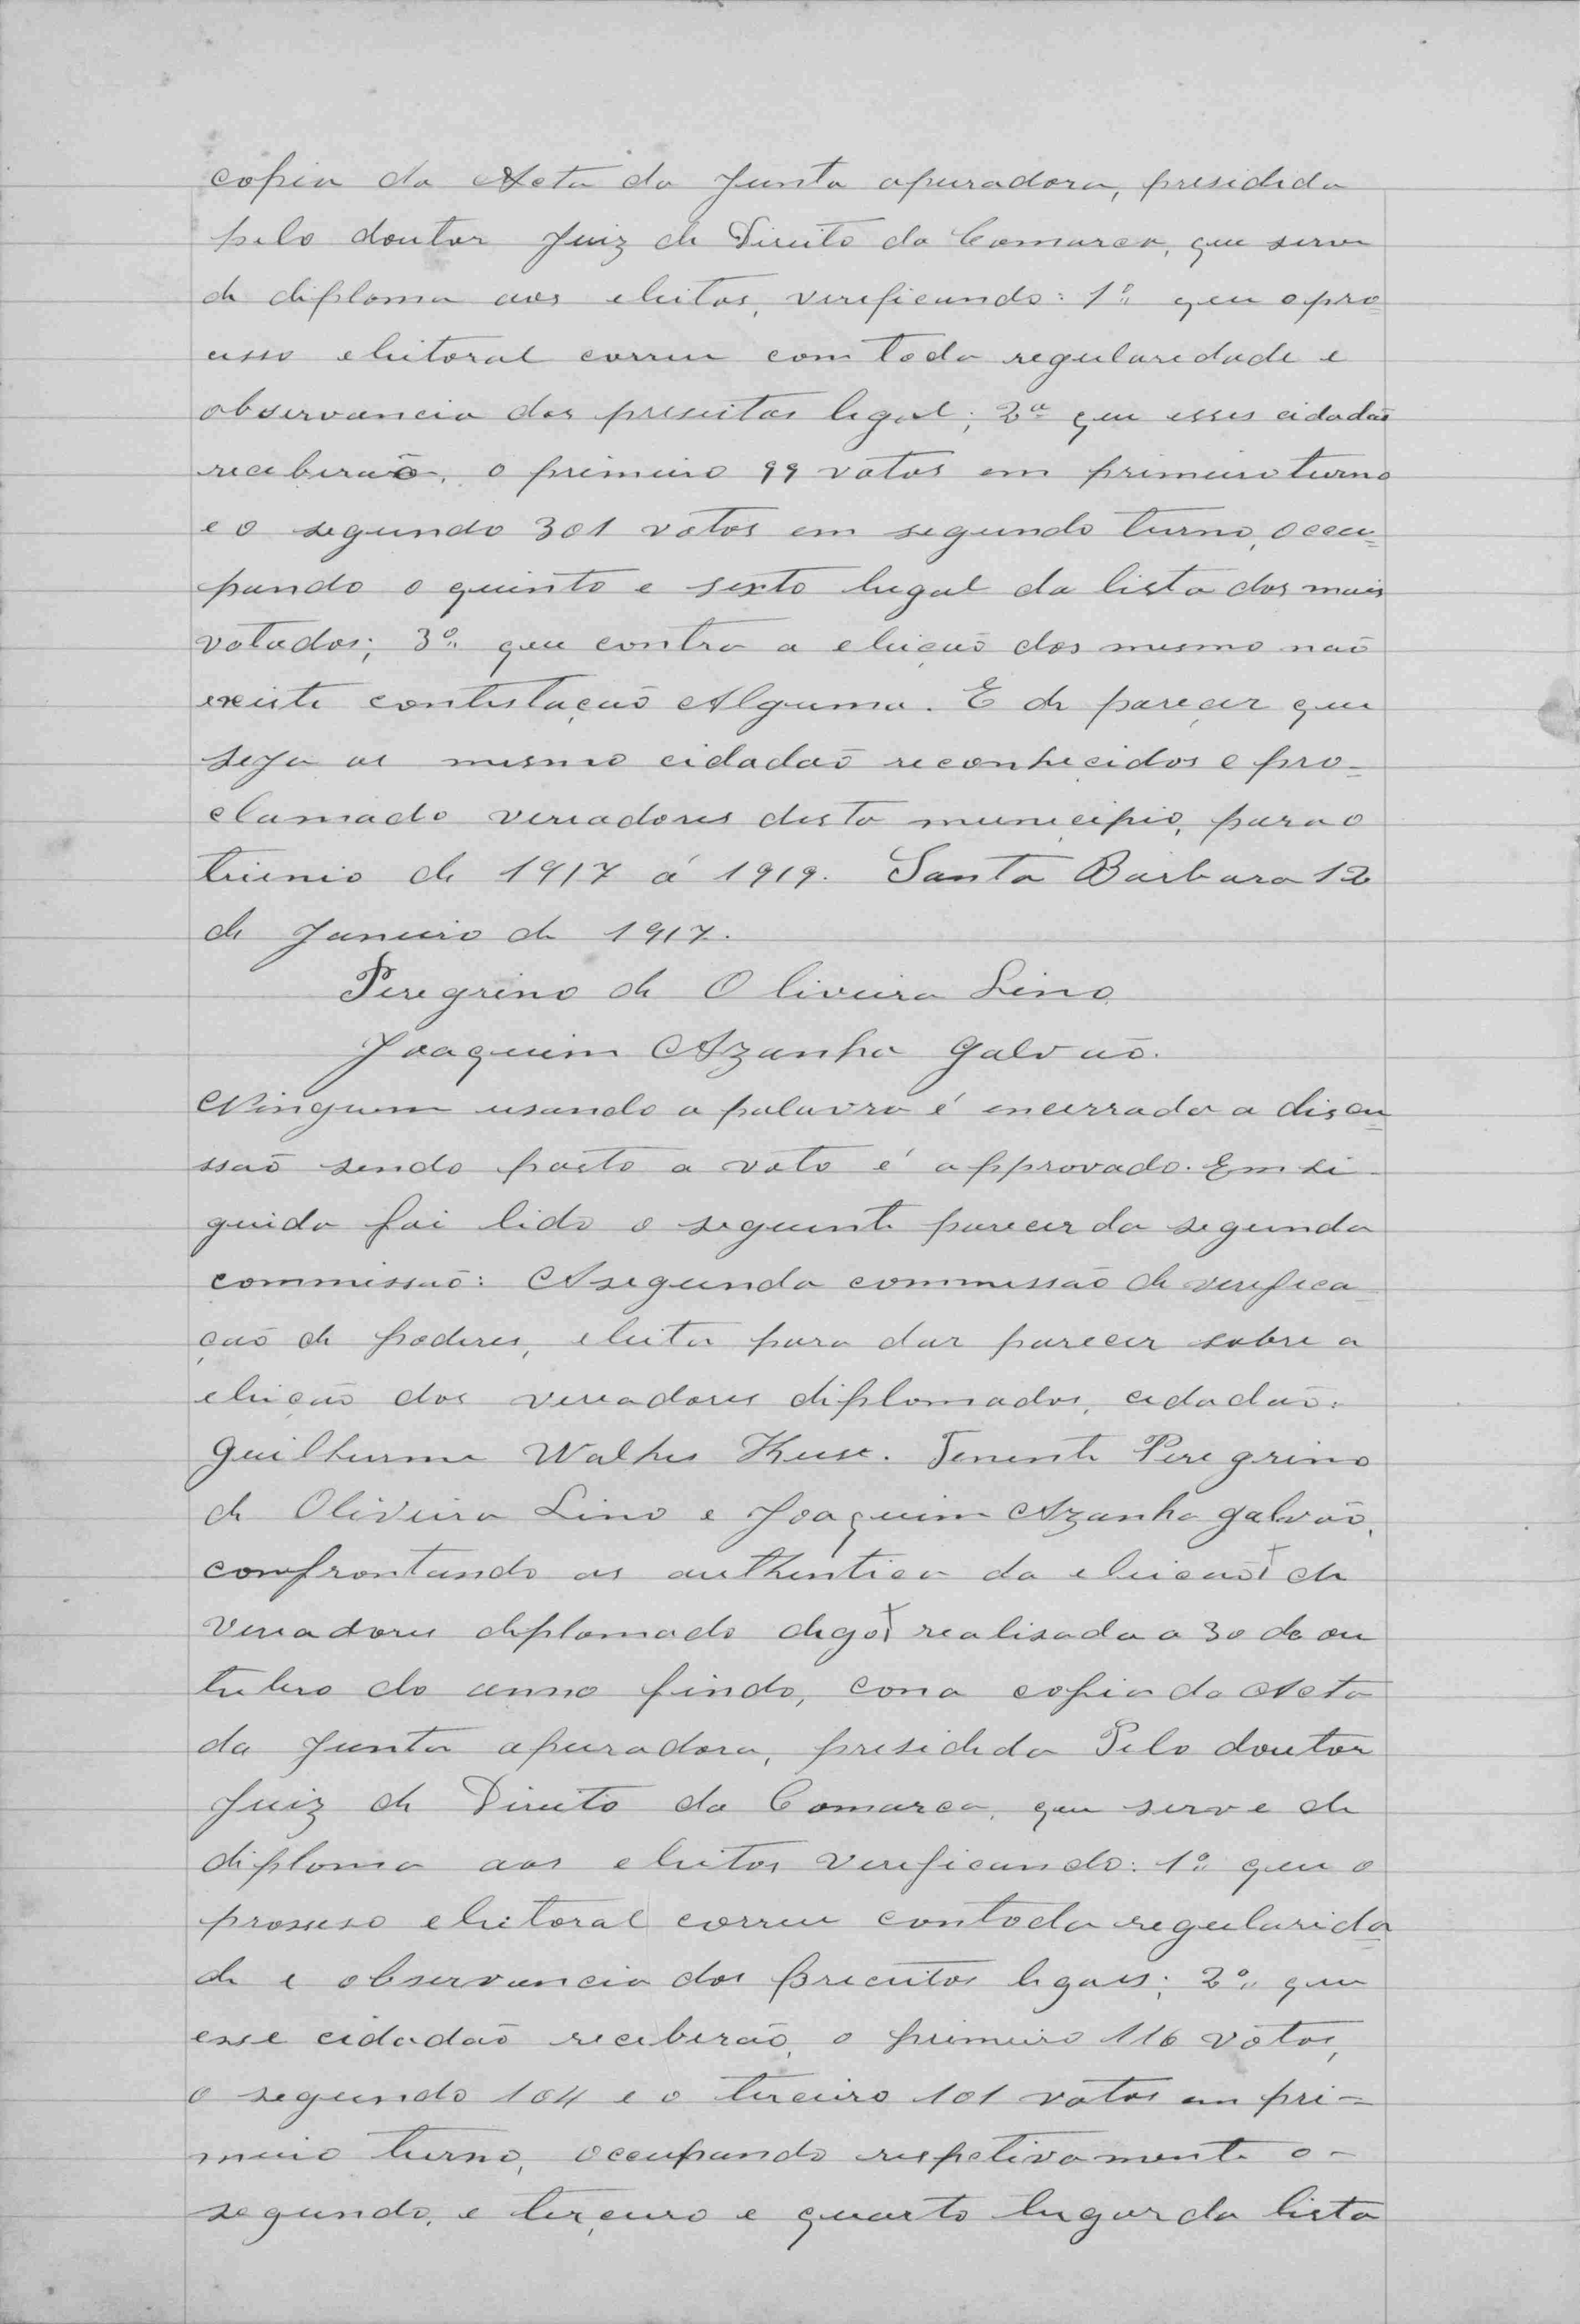 copia da Acta da Junta apuradora, presidida
pelo doutor Juiz de Direito da Comarca, que serve
de diploma aos eleitos, verificando: 1º que o pro=
cesso eleitoral correu com toda regularedade e
observancia dos preseitos legal; 2ª que esses cidadão
receberaõ, o primeiro 99 votos em primeiro turno
e o segundo 301 votos em segundo turno, occu=
pando o quinto e sexto lugal da lista dos mais
votados; 3º que contra a eleiçaõ dos mesmo naõ
existe contestaçaõ Alguma. E de pareçer que
seja os mesmo cidadaõ reconhecidos e pro=
clamado vereadores desta municipio, para o
trienio de 1917 á 1919. Santa Barbara 12
de Janeiro de 1917.
Peregrino de Oliveira Lino
Joaquim Azanha Galvaõ.
Ninguem usando a palavra é encerrada a discu=
ssaõ sendo posto a voto é approvado. Em se-
guida foi lido o seguente parecer da segunda
commissaõ: A segunda commissão de verefica
çaõ de poderes, eleita para dar parecer sobre a
eleiçaõ dos vereadores diplomados, cedadaõ:
Guilherme Walhes Kuse. Tenente Peregrino
de Oliveira Lino e Joaquim Azanha Galvaõ,
comfrontando as authentica da eleicaõ de
Vereadores deplomado digo realisada a 30 de ou
tubro do anno findo, con a copia da Acta
da Junta apuradora, presedida Pelo doutor
Juiz de Direito da Comarca, que serve de
diploma aos eleitos Verificando: 1º que o
prosseso eleitoral correu contoda regularida=
de e observancia dos Preceitos legaes; 2º que
esse cidadaõ receberaõ, o primeiro 116 votos,
o segundo 104 e o terceiro 101 votos em pri=
meiro turno, occupando respetivamente o-
segundo, e terçeiro e quarto lugar da lista